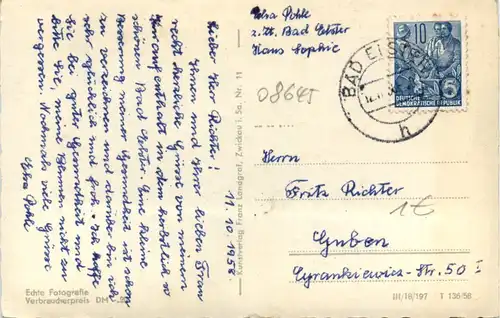 Elsa Pohle
z. Zt. Bad Elster
Haus Sophie
10
DEUTSCHE
DEMOKRATISCHE REPUBLIK
BAD ELSTER
h
08645
11.10.1958
Lieber Herr Richter!
Ihnen und Ihrer lieben Frau
recht herzliche Grüsse von meinem
Kuraufenthalt in dem herbstlich
schönen Bad Elster. Eine kleine
Besserung meiner Gesundheit ist schon
zu verzeichnen und darüber bin ich
sehr glücklich und froh. Ich hoffe
Sie bei guter Gesundheit und
bitte Sie, meine Blumen nicht zu
vergessen. Nochmals viele Grüsse
Elsa Pohle
Kunstverlag Franz Landgraf, Zwickau i. Sa. Nr. 11
Herrn
Fritz Richter
1€
Guben
Cyrankiewicz-Str. 50 I
Echte Fotografie
Verbraucherpreis DM
III/18/197 T 136/58